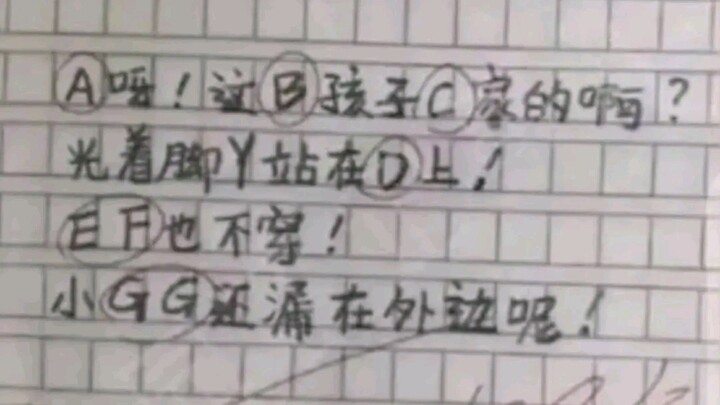 A呀！这B孩子C家的啊？
光着脚丫站在D上！
EF也不穿！
小GG还漏在外边呢！